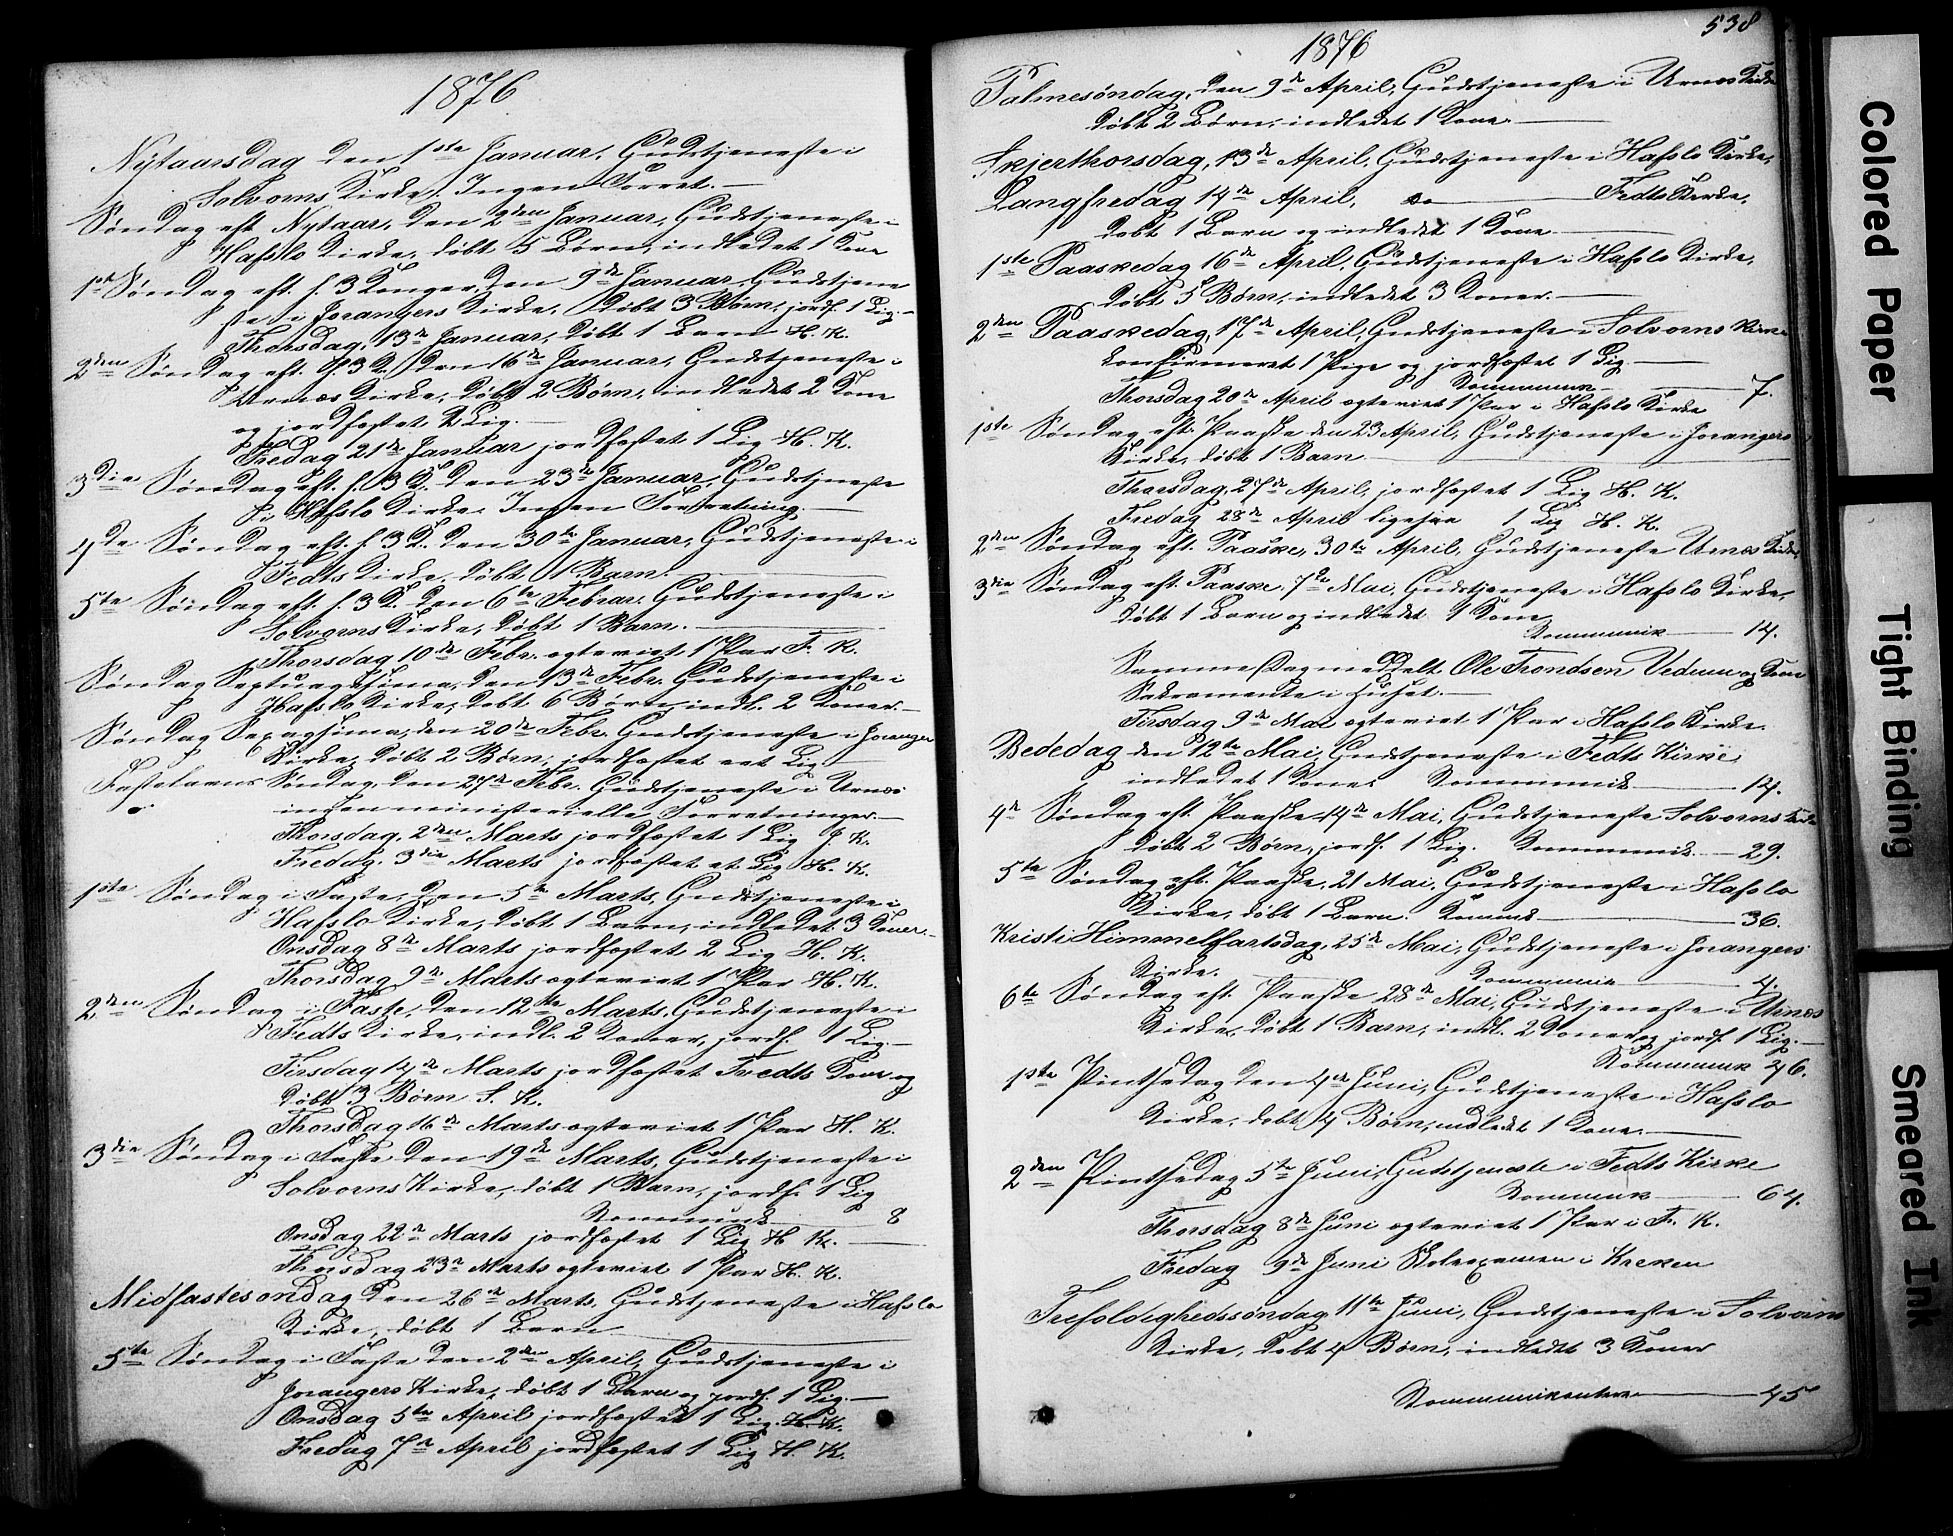 1876
Nytaarsdag den 1ste Januar, Gudstjeneste i
Solvorns Kirke. Ingen Forret.
Søndag eft Nytaar, den 2den Januar, Gudstjeneste i
Hafslo Kirke, døbt 5 Børn, indledet 1 Kone
1ste Søndag eft. h. 3 Konger, den 9de Januar, Gudstjene
ste i Jorangers Kirke, døbt 3 Børn, jordf. 1 Lig.
Thorsdag, 13de Januar, døbt 1 Barn H. K.
2den Søndag eft. h. 3 K. den 16de Januar, Gudstjeneste i
Urnæs Kirke, døbt 2 Børn, indledet 2 Kone
og jordfæstet 2 Lig.
Fredag 21de Januar jordfæstet 1 Lig H. K.
3die Søndag eft. h. 3 K. den 23de Januar, Gudstjeneste
i Hafslo Kirke. Ingen Forretning.
4de Søndag eft. h. 3 K. den 30te Januar, Gudstjeneste i
Fedts Kirke, døbt 1 Barn.
5te Søndag eft. h. 3 K. den 6te Februar, Gudstjeneste i
Solvorns Kirke, døbt 1 Barn.
Thorsdag 10de Febr. egteviet 1 Par F. K.
Søndag Septuagesima, den 13de Febr. Gudstjeneste i
Hafslo Kirke, døbt 6 Børn, indl. 2 Koner.
Søndag Sexagesima, den 20de Febr. Gudstjeneste i Joranger
Kirke, døbt 2 Børn, jordfæstet eet Lig
Fastelavns Søndag, den 27de Febr. Gudstjeneste i Urnæs
ingen ministerielle Forretninger.
Thorsdag, 2den Marts jordfæstet 1 Lig J. K.
Fredag, 3die Marts jordfæstet et Lig H. K.
1ste Søndag i Faste, den 5te Marts, Gudstjeneste i
Hafslo Kirke, døbt 1 Barn, indledet 3 Koner.
Onsdag 8de Marts jordfæstet 2 Lig H. K.
Thorsdag 9de Marts egteviet 1 Par H. K.
2den Søndag i Faste, den 12te Marts, Gudstjeneste i
Fedts Kirke, indl. 2 Koner, jordf. 1 Lig.
Tirsdag 14de Marts jordfæstet Tvedts Kone og
døbt 3 Børn S. K.
Thorsdag 16de Marts egteviet 1 Par H. K.
3die Søndag i Faste den 19de Marts, Gudstjeneste i
Solvorns Kirke, døbt 1 Barn, jordf. 1 Lig
Kommunik 8
Onsdag 22de Marts jordfæstet 1 Lig H K.
Thorsdag 23de Marts egteviet 1 Par H. K.
Midfastesøndag den 26de Marts, Gudstjeneste i Hafslo
Kirke, døbt 1 Barn
5te Søndag i Faste den 2den April, Gudstjeneste i
Jorangers Kirke, døbt 1 Barn og jordf. 1 Lig.
Onsdag 5te April jordfæstet 1 Lig. H. K.
Fredag 7de April jordfæstet 1 Lig H. K.
538
1876
Palmesøndag, den 9de April, Gudstjeneste i Urnæs Kirke
døbt 2 Børn, indledet 1 Kone.
Skjerthorsdag, 13de April, Gudstjeneste i Hafslo Kirke,
Langfredag 14de April, do Fedts Kirke,
døbt 1 Barn og indledet 1 Kone.
1ste Paaskedag 16de April, Gudstjeneste i Hafslo Kirke,
døbt 5 Børn, indledet 3 Koner.
2den Paaskedag, 17de April, Gudstjeneste i Solvorns Kirke
konfirmeret 1 Pige og jordfæstet 1 Lig.
Kommunik 7.
Thorsdag 20de April egteviet 1 Par i Hafslo Kirke
1ste Søndag eft. Paaske den 23 April, Gudstjeneste i Jorangers
Kirke, døbt 1 Barn
Thorsdag, 27de April, jordfæstet 1 Lig H. K.
Fredag 28de April ligesaa 1 Lig H. K.
2den Søndag eft. Paaske, 30te April, Gudstjeneste Urnæs Kirke
3die Søndag eft. Paaske, 7de Mai, Gudstjeneste i Hafslo Kirke,
døbt 1 Barn og indledet 1 Kone
Kommunik 14.
Sammestag meddelt Ole Trondsen Vedum og Kone
Sakramente i Huset.
Tirsdag 9de Mai egteviet 1 Par i Hafslo Kirke.
Bededag den 12te Mai, Gudstjeneste i Fedts Kirke,
indledet 1 Kone. Kommunik 14.
4de Søndag eft. Paaske 14de Mai, Gudstjeneste Solvorns Kirke
døbt 2 Børn, jordf. 1 Lig. Kommunik 29.
5te Søndag eft. Paaske, 21 Mai, Gudstjeneste i Hafslo
Kirke, døbt 1 Barn. Kommk 36.
Kristi Himmelfartsdag, 25de Mai, Gudstjeneste i Jorangers
Kirke. Kommunik 4.
6te Søndag eft. Paaske 28de Mai, Gudstjeneste i Urnæs
Kirke, døbt 1 Barn, indl. 2 Koner og jordf. 1 Lig.
Kommunik 26.
1ste Pintsedag den 4de Juni, Gudstjeneste i Hafslo
Kirke, døbt 4 Børn, indledet 1 Kone.
2den Pintsedag 5te Juni, Gudstjeneste i Fedts Kirke
Kommunik 64.
Thorsdag 8de Juni egteviet 1 Par i F. K.
Fredag 9de Juni Skoleexamen i Kreken
Trefoldighedssøndag 11te Juni, Gudstjeneste i Solvorns
Kirke, døbt 4 Børn, indledet 3 Koner
Kommunikanter 45
Colored Paper
Tight Binding
Smeared Ink